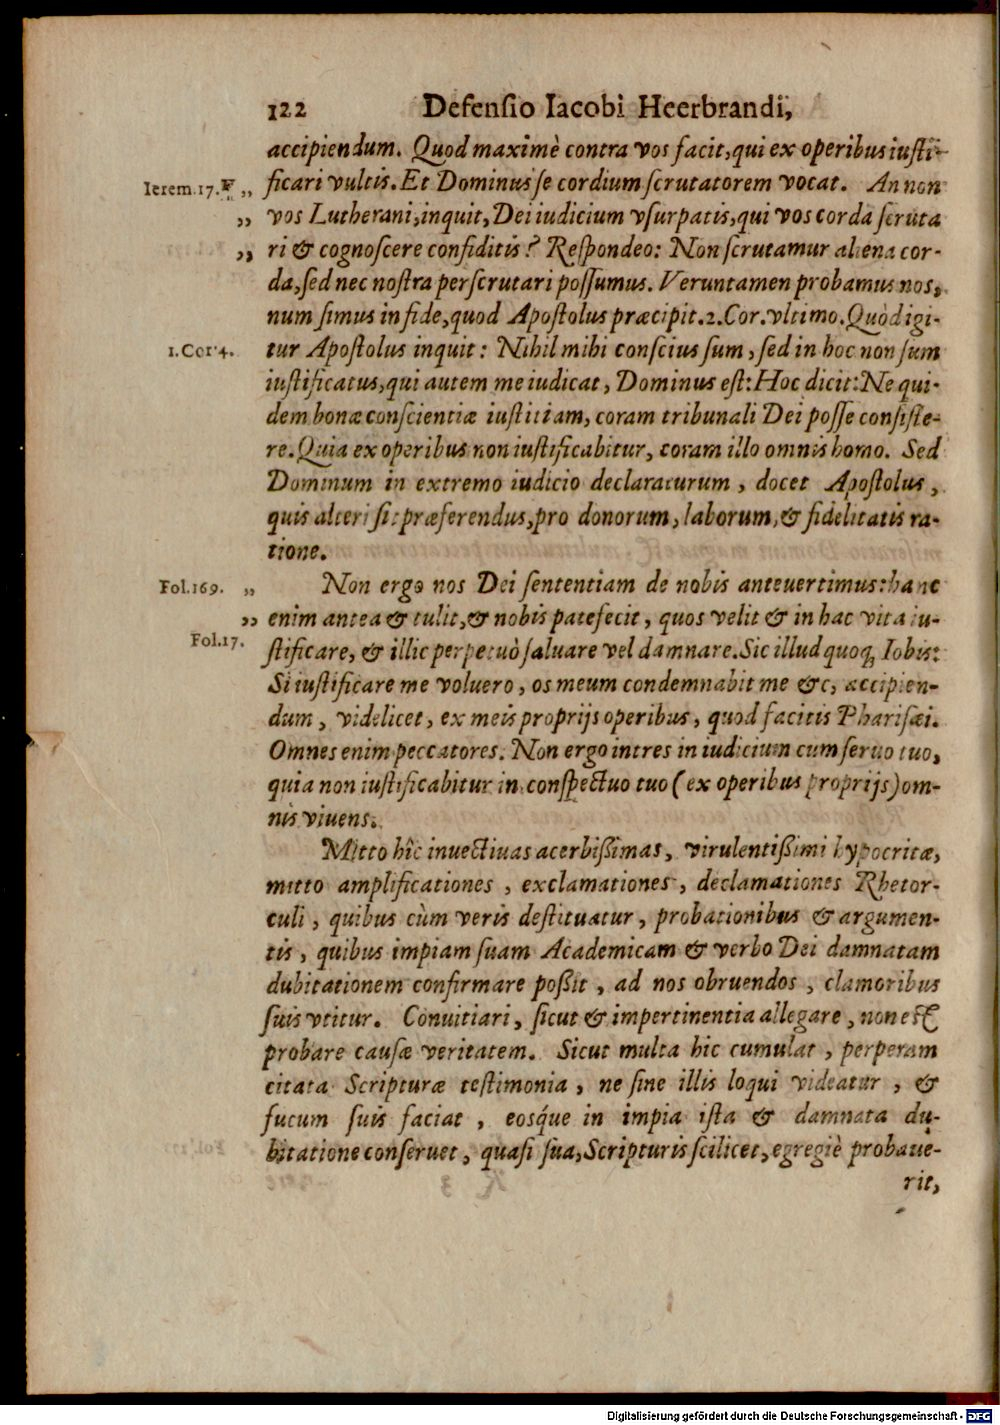 122 Defensio Iacobi Heerbrandi,
accipiendum. Quod maximè contra vos facit, qui ex operibus iusti-
Ierem.17. F „ ficari vultis. Et Dominus se cordium scrutatorem vocat. An non
„ vos Lutherani, inquit, Dei iudicium vsurpatis, qui vos corda scruta
„ ri & cognoscere confiditis? Respondeo: Non scrutamur aliena cor-
da, sed nec nostra perscrutari possumus. Veruntamen probamus nos,
num simus in fide, quod Apostolus præcipit. 2. Cor. vltimo. Quòd igi-
1.Cor4. tur Apostolus inquit: Nihil mihi conscius sum, sed in hoc non sum
iustificatus, qui autem me iudicat, Dominus est: Hoc dicit: Ne qui-
dem bonæ conscientiæ iustitiam, coram tribunali Dei posse consiste-
re. Quia ex operibus non iustificabitur, coram illo omnis homo. Sed
Dominum in extremo iudicio declaraturum, docet Apostolus,
quis alteri sit præferendus, pro donorum, laborum, & fidelitatis ra-
tione.
Fol.169. „ Non ergo nos Dei sententiam de nobis anteuertimus: hanc
„ enim antea & tulit, & nobis patefecit, quos velit & in hac vita iu-
Fol.17. stificare, & illic perpetuò saluare vel damnare. Sic illud quoq; Iobis:
Si iustificare me voluero, os meum condemnabit me &c, accipien-
dum, videlicet, ex meis proprijs operibus, quod facitis Pharisæi.
Omnes enim peccatores. Non ergo intres in iudicium cum seruo tuo,
quia non iustificabitur in conspectuo tuo (ex operibus proprijs) om-
nis viuens.
Mitto hîc inuectiuas acerbißimas, virulentißimi hypocritæ,
mitto amplificationes, exclamationes, declamationes Rhetor-
culi, quibus cùm veris destituatur, probationibus & argumen-
tis, quibus impiam suam Academicam & verbo Dei damnatam
dubitationem confirmare poßit, ad nos obruendos, clamoribus
suis vtitur. Conuitiari, sicut & impertinentia allegare, non est
probare causæ veritatem. Sicut multa hic cumulat, perperam
citata Scripturæ testimonia, ne sine illis loqui videatur, &
fucum suis faciat, eosq́ue in impia ista & damnata du-
bitatione conseruet, quasi sua, Scripturis scilicet, egregiè probaue-
rit,
Digitalisierung gefördert durch die Deutsche Forschungsgemeinschaft - DFG